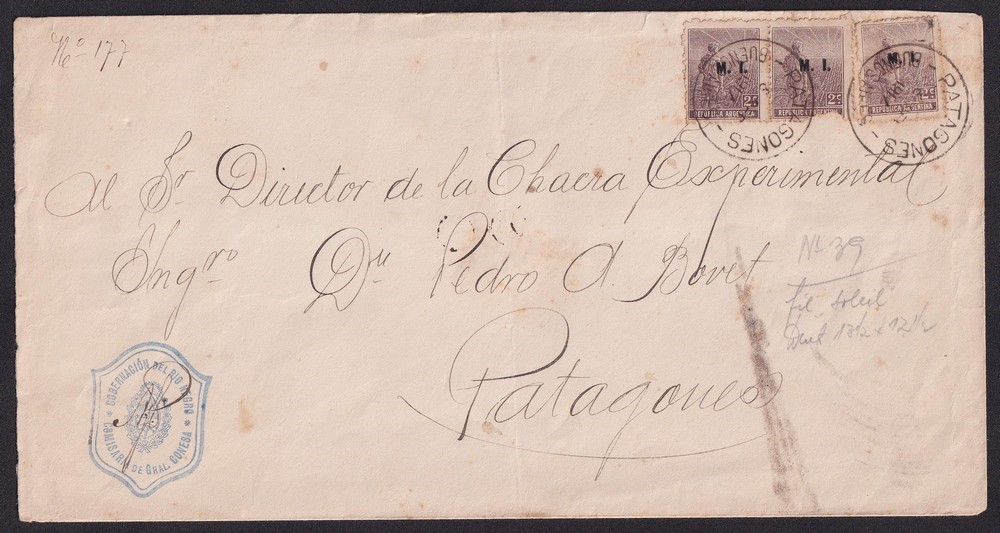 No 177
M. I.
M. I.
M. I.
2c
2c
2c
REPUBLICA ARGENTINA
REPUBLICA ARGENTINA
REPUBLICA ARGENTINA
PATAGONES - BUENOS AIRES
PATAGONES - BUENOS AIRES
Al Sr Director de la Chacra Experimental
Ingro Dn Pedro A. Bovet
Patagones
No 39
fil. soleil
Dent 13½ x 12½
GOBERNACIÓN DEL RIO NEGRO
COMISARIA DE GRAL. CONESA